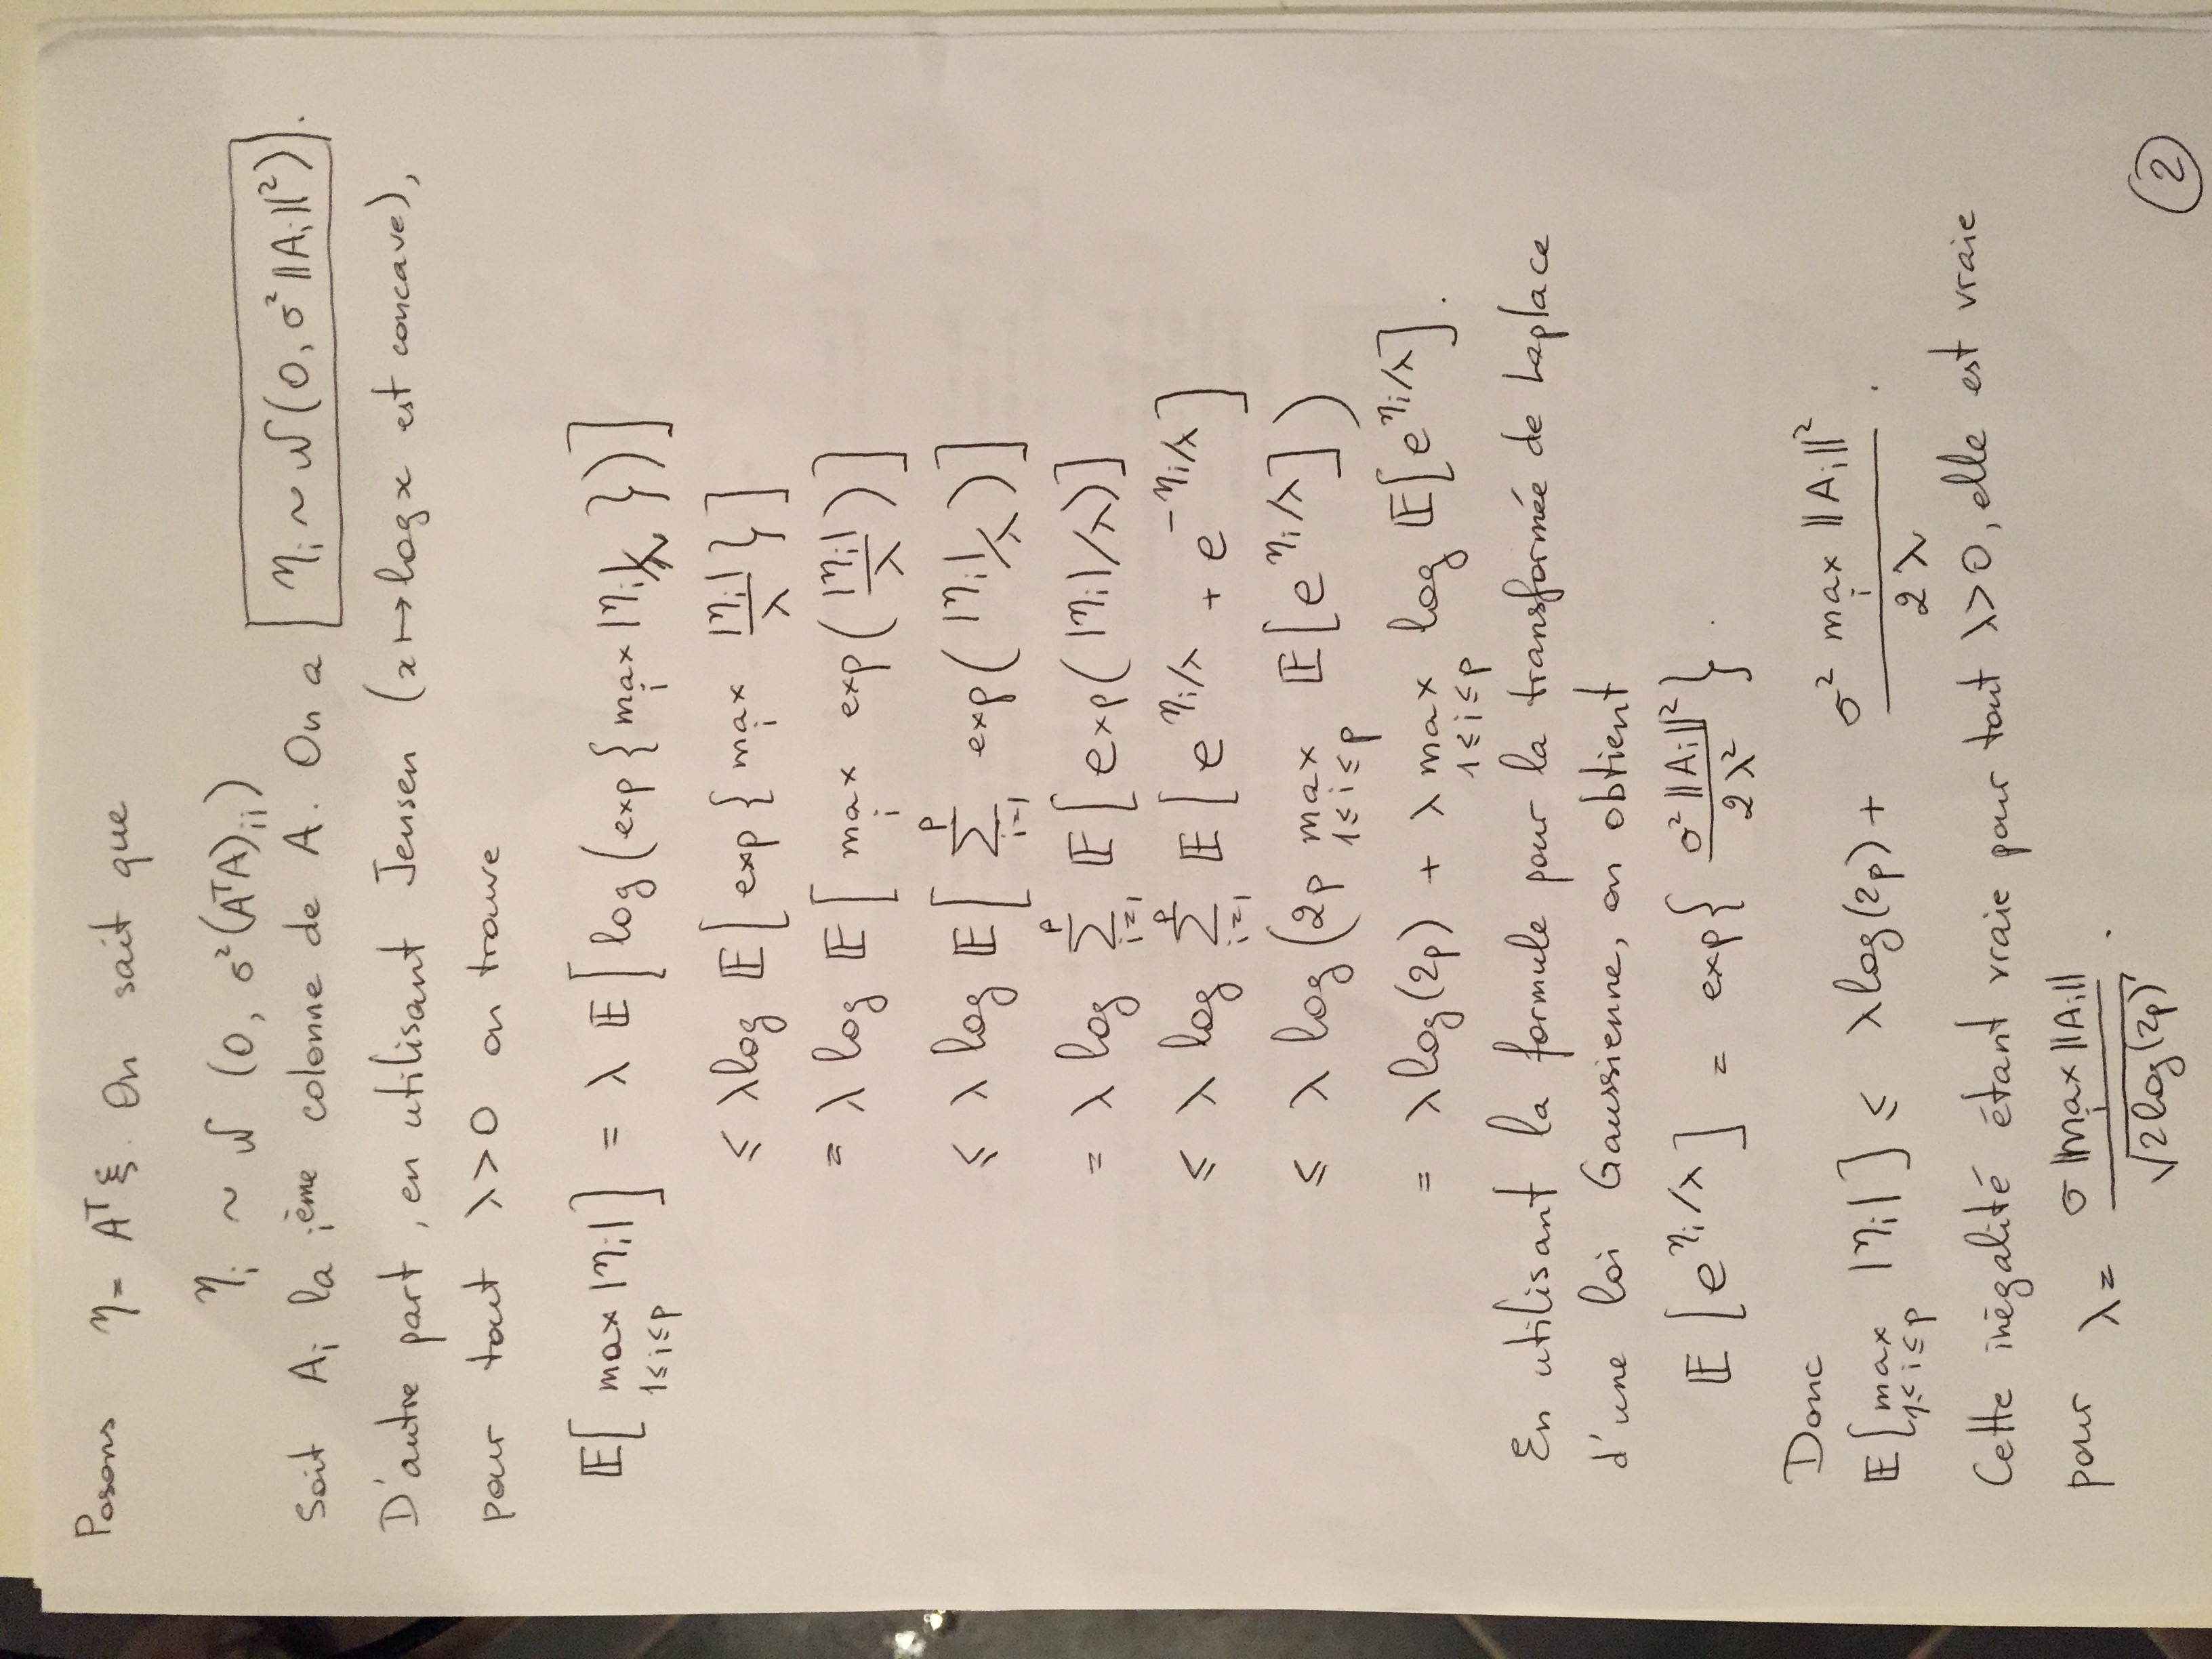 Posons η = Aᵀξ. On sait que
ηᵢ ~ N(0, σ²(AᵀA)ᵢᵢ)
Soit Aᵢ la iᵉᵐᵉ colonne de A. On a ηᵢ ~ N(0, σ²‖Aᵢ‖²).
D'autre part, en utilisant Jensen (x ↦ log x est concave),
pour tout λ>0 on trouve
E[max_{1≤i≤p} |ηᵢ|] = λ E[log(exp{max_i |ηᵢ|/λ})]
≤ λ log E[exp{max_i |ηᵢ|/λ}]
= λ log E[max_i exp(|ηᵢ|/λ)]
≤ λ log E[∑_{i=1}^p exp(|ηᵢ|/λ)]
= λ log ∑_{i=1}^p E[exp(|ηᵢ|/λ)]
≤ λ log ∑_{i=1}^p E[e^{ηᵢ/λ} + e^{-ηᵢ/λ}]
≤ λ log(2p max_{1≤i≤p} E[e^{ηᵢ/λ}])
= λ log(2p) + λ max_{1≤i≤p} log E[e^{ηᵢ/λ}].
En utilisant la formule pour la transformée de Laplace
d'une loi Gaussienne, on obtient
E[e^{ηᵢ/λ}] = exp{σ²‖Aᵢ‖²/2λ²}.
Donc
E[max_{1≤i≤p} |ηᵢ|] ≤ λ log(2p) + σ² max_i ‖Aᵢ‖²/2λ.
Cette inégalité étant vraie pour tout λ>0, elle est vraie
pour λ = σ max_i ‖Aᵢ‖/√(2log(2p)).
2